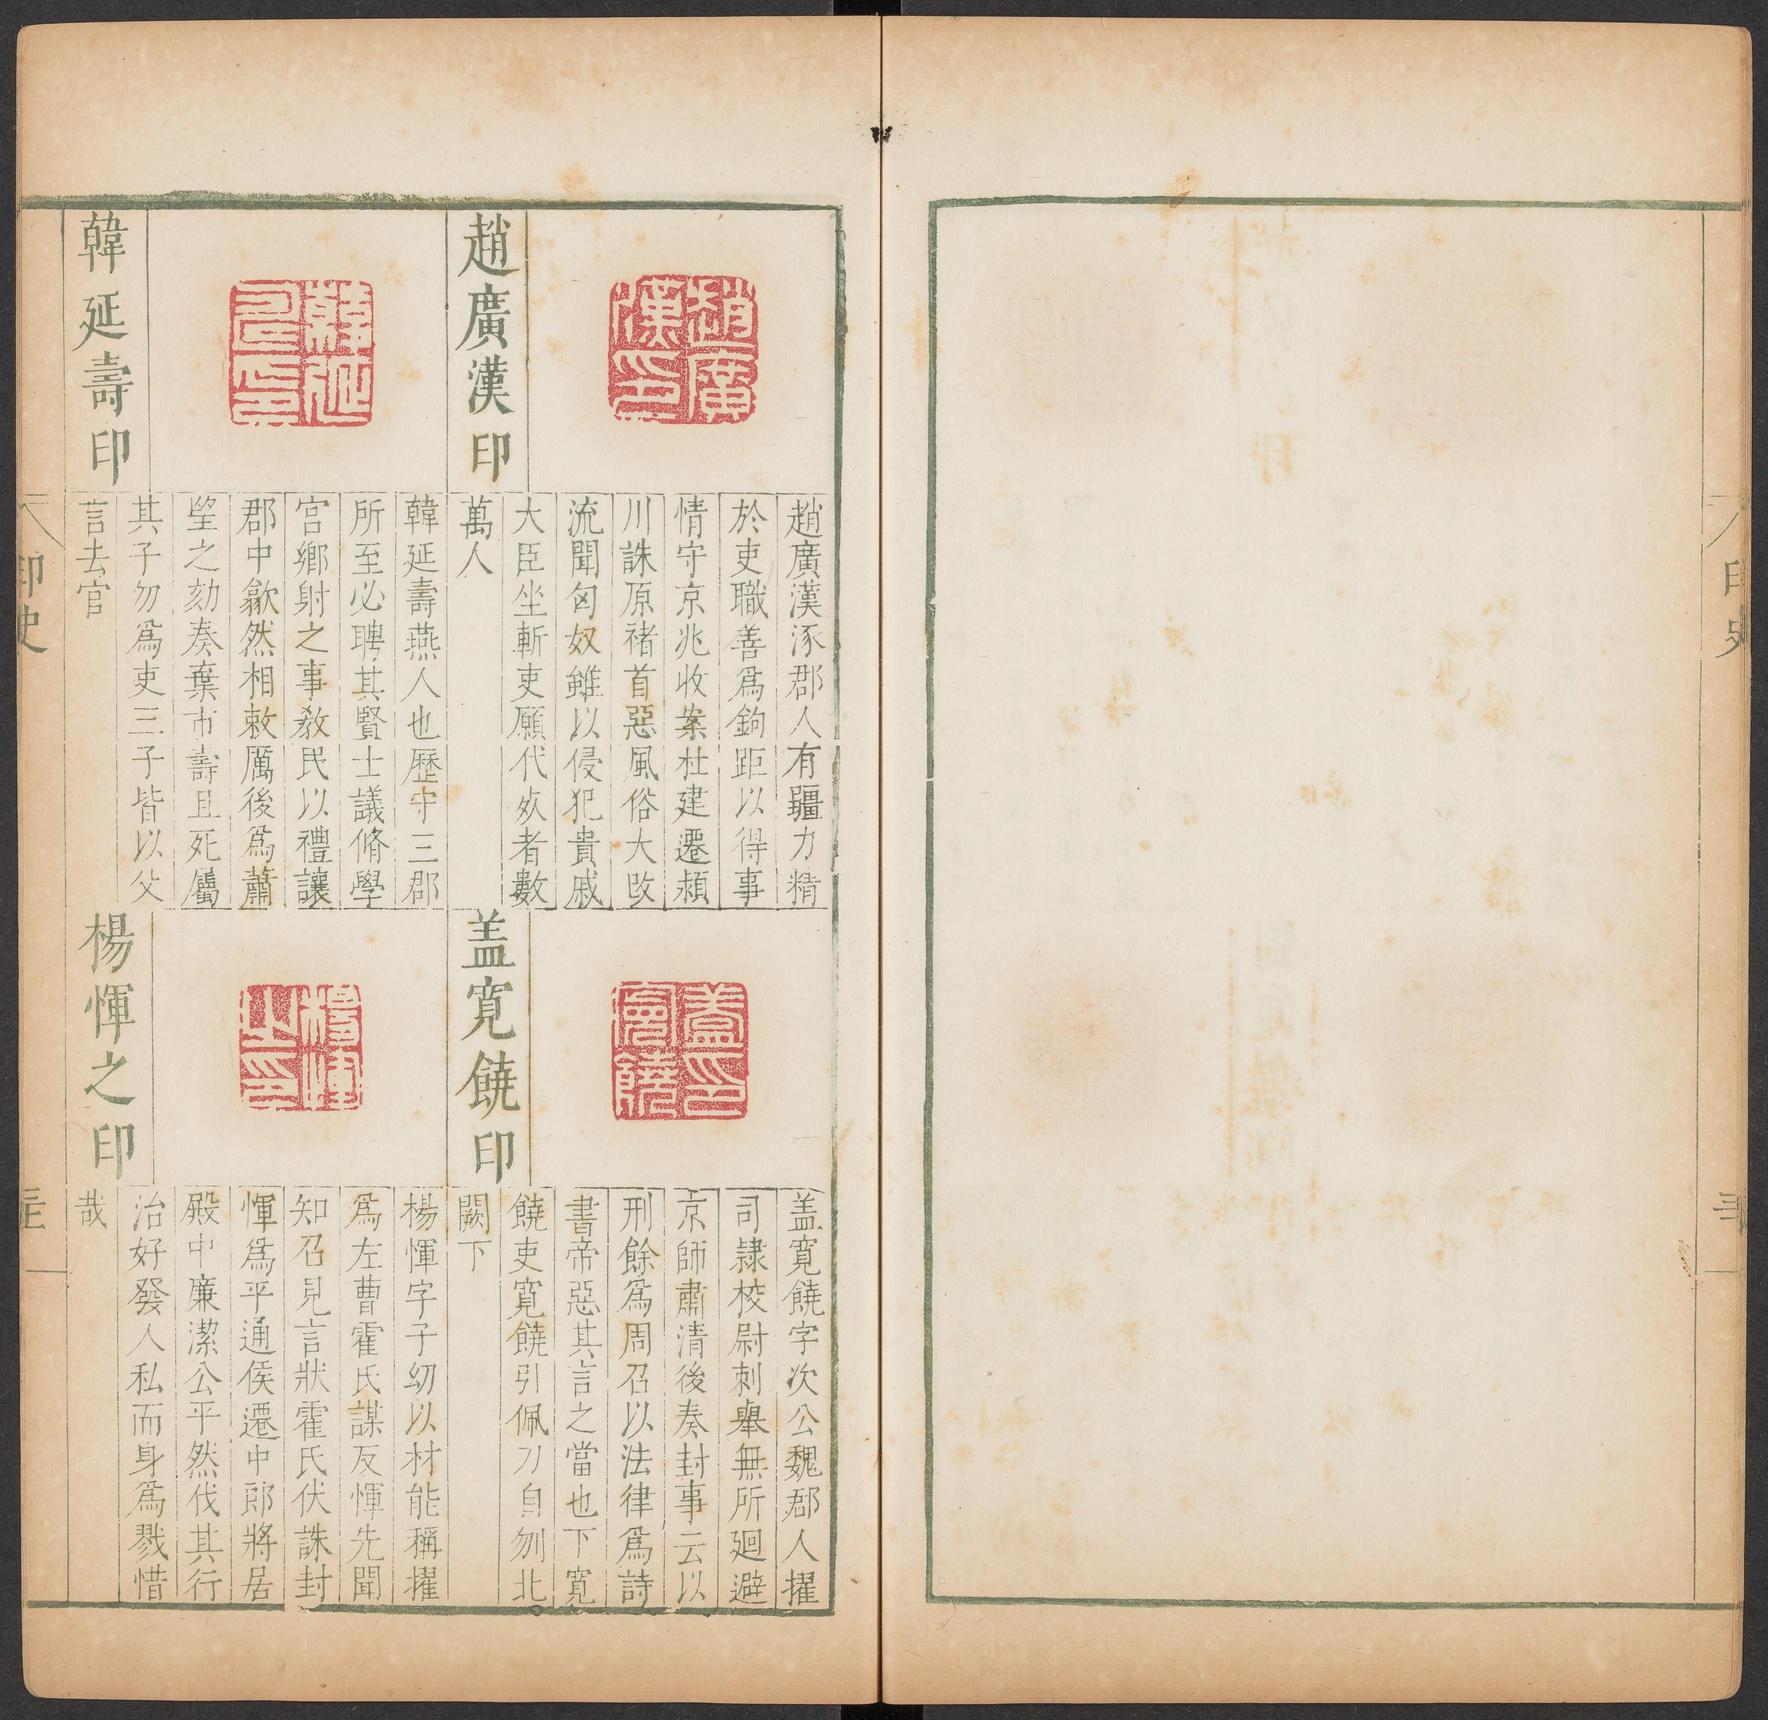 趙廣漢印
趙廣漢涿郡人有疆力精
於吏職善爲鉤距以得事
情守京兆收案杜建遷潁
川誅原褚首惡風俗大改
流聞匈奴雖以侵犯貴戚
大臣坐斬吏願代死者數
萬人
韓延壽印
韓延壽燕人也歷守三郡
所至必聘其賢士議脩學
宮鄉射之事教民以禮讓
郡中歙然相敕厲後爲蕭
望之劾奏棄市壽且死屬
其子勿爲吏三子皆以父
言去官
盖寬饒印
盖寬饒字次公魏郡人擢
司隷校尉刺舉無所廻避
京師肅清後奏封事云以
刑餘爲周召以法律爲詩
書帝惡其言之當也下寬
饒吏寬饒引佩刀自刎北
闕下
楊惲之印
楊惲字子幼以材能稱擢
爲左曹霍氏謀反惲先聞
知召見言狀霍氏伏誅封
惲爲平通侯遷中郎將居
殿中廉潔公平然伐其行
治好發人私而身爲戮惜
哉
印史
印史